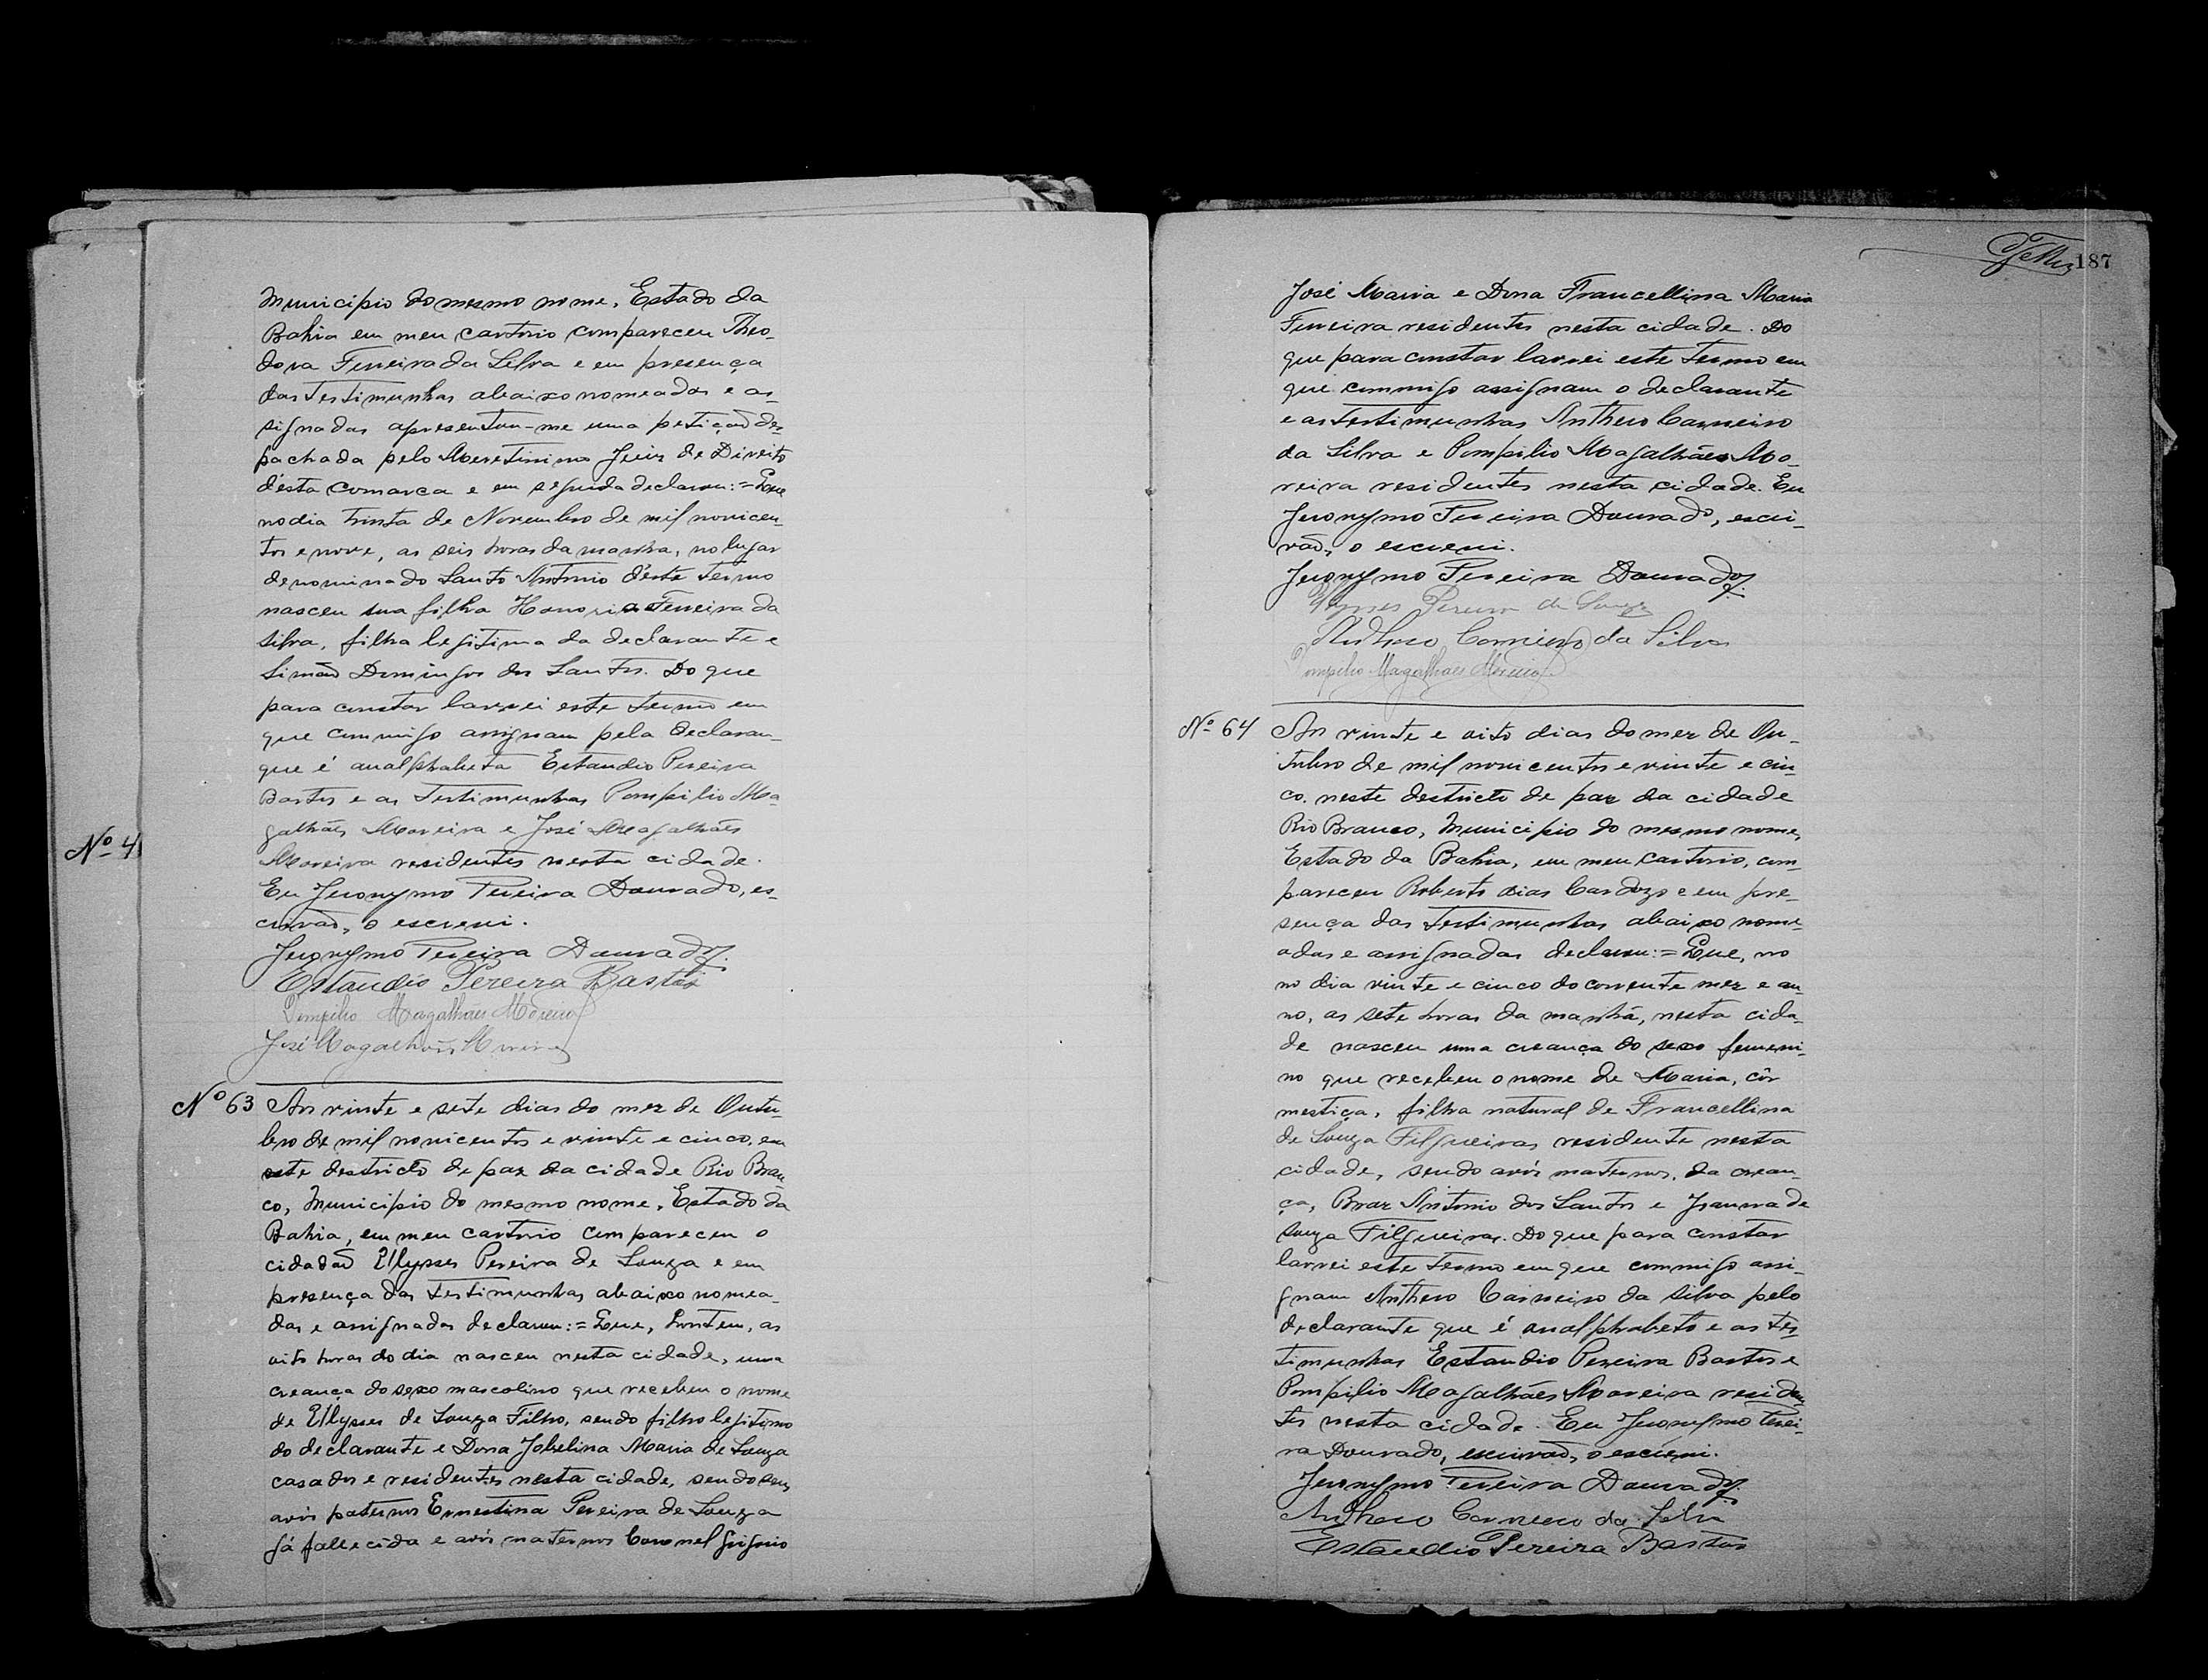 Municipio do mesmo nome, Estado da
Bahia em meu cartorio compareceu Theo-
dora Ferreira da Silva e em presença
das testimunhas abaixo nomeadas e as-
signadas apresentou-me uma petição des-
pachada pelo Meretissimo Juiz de Direito
d'esta Comarca e em seguida declarou:= Que
no dia trinta de Novembro de mil novicen-
tos e nove, as seis horas da manhã, no lugar
denominado Santo Antonio d'este termo
nasceu sua filha Honoria Ferreira da
Silva, filha legitima da declarante e
Simão Domingos dos Santos. Do que
para constar lavrei este termo em
que commigo assignam pela declaran-
que é analphabeta Estaudio Pereira
Bastos e as testimunhas Pompilio Ma-
galhães Moreira e José Magalhães
Moreira residentes nesta cidade.
Eu Jeronymo Pereira Dourado, es-
crivão, o escrevi.
Jeronymo Pereira Dourado.
Estaudio Pereira Bastos
Pompilio Magalhães Moreira
José Magalhães Moreira
Nº 4
Nº 63 Aos vinte e sete dias do mez de Outu-
bro de mil novicentos e vinte e cinco, em
este destricto de paz da cidade Rio Bran
co, Municipio do mesmo nome, Estado da
Bahia, em meu cartorio compareceu o
cidadão Ulysses Pereira de Souza e em
presença das testimunhas abaixo nomea-
das e assignadas declarou:= Que, hontem, as
oito horas do dia nasceu nesta cidade, uma
creança do sexo mascolino que recebeu o nome
de Ulysses de Souza Filho, sendo filho legitimo
do declarante e Dona Jobelina Maria de Souza
casados e residentes nesta cidade, sendo seus
avós paternos Ernestina Pereira de Souza
já fallecida e avós maternos Coronel
187
José Maria e Dona Francellina Maria
Ferreira residentes nesta cidade. Do
que para constar lavrei este termo em
que commigo assignam o declarante
e as testimunhas Anthero Carneiro
da Silva e Pompilio Magalhães Mo-
reira residentes nesta cidade. Eu
Jeronymo Pereira Dourado, escri-
vão, o escrevi.
Jeronymo Pereira Dourado.
Ulysses Pereira de Souza
Anthero Carneiro da Silva
Pompilio Magalhães Moreira
Nº 64 Aos vinte e oito dias do mez de Ou-
tubro de mil novicentos e vinte e cin-
co, neste destricto de paz da cidade
Rio Branco, Municipio do mesmo nome,
Estado da Bahia, em meu cartorio, com-
pareceu Roberto dias Cardozo e em pre-
sença das testimunhas abaixo nome-
adas e assignadas declarou:= Que, no
no dia vinte e cinco do corrente mez e an-
no, as sete horas da manhã, nesta cida-
de nasceu uma creança do sexo femeni-
no que recebeu o nome de Maria, côr
mestiça, filha natural de Francellina
de Souza Filgueiras residente nesta
cidade, sendo avós maternos, da crean-
ça, Braz Antonio dos Santos e Joanna de
Souza Filgueiras. Do que para constar
lavrei este termo em que commigo assi-
gnam Anthero Carneiro da Silva pelo
declarante que é analphabeto e as tes-
timunhas Estaudio Pereira Bastos e
Pompilio Magalhães Moreira residen
tes nesta cidade. Eu Jeronymo Perei-
ra Dourado, escrivão, o escrevi.
Jeronymo Pereira Dourado.
Anthero Carneiro da Silva
Estaudio Pereira Bastos